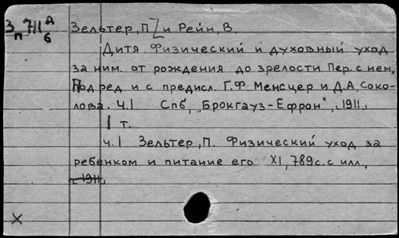 З 711 А/б
п
Зельтер, П [и Рейн, В.
Дитя. Физический и духовный уход
за ним от рождения до зрелости. Пер. с нем,
Под ред. и с предисл. Г.Ф Менсцер и Д.А. Соко-
лова. Ч.1 Спб, „Брокгауз-Ефрон", 1911.
1 т.
ч.1 Зельтер, П. Физический уход за
ребенком и питание его. XI, 789с. с илл,
1911.
X